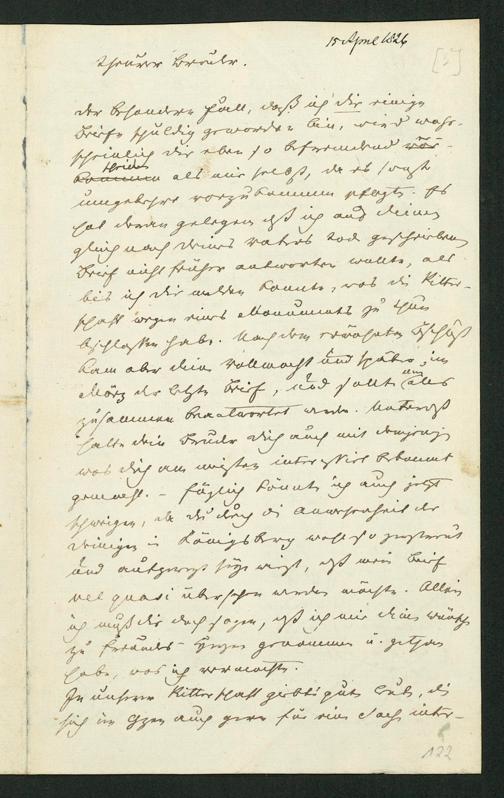 15 April 1826
[5]
Theurer Bruder.
Der besondere Fall, daß ich dir einige
Briefe schuldig geworden bin, wird wahr-
scheinlich dir eben so befremdend vor-
kommen als mir selbst, da es sonst
umgekehrt vorzukommen pflegt. Es
hat daran gelegen daß ich auf deinen
gleich nach deines Vaters Tode geschriebenen
Brief nicht früher antworten wollte, als
bis ich dir melden konnte, was die Ritter-
schaft wegen eines Monuments zu thun
beschlossen habe. Nach dem
kam aber deine Vollmacht und später, im
März der letzte Brief, und sollte nun alles
zusammen beantwortet werden. Unterdeß
hatte dein Bruder dich auch mit demjenigen
was dich am meisten interessirt bekannt
gemacht. – Füglich könnte ich auch jetzt
schweigen, da du durch die Anwesenheit der
Deinigen in Königsberg wohl so zerstreut
und aufgeregt seyn wirst, daß mein Brief
vel quasi übersehen werden möchte. Allein
ich muß dir doch sagen, daß ich mir deine Wünsche
zu Freundes-Herzen genommen u. gethan
habe, was ich vermochte.
In unserer Ritterschaft giebts gute Leute, die
sich im Ganzen auch gern für eine Sache inter-
122